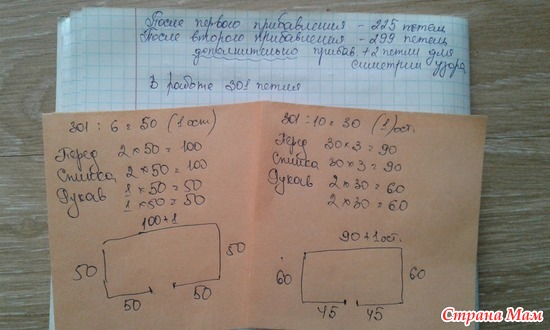 После первого прибавления - 225 петель
После второго прибавления - 299 петель
дополнительно прибав. +2 петли для
симметрии узора
В работе 301 петля
301 : 6 = 50 (1 ост)
Перед 2 × 50 = 100
Спинка 2 × 50 = 100
Рукав 1 × 50 = 50
1 × 50 = 50
100+1
50
50
50
50
301 : 10 = 30 (1) ост.
Перед 30 × 3 = 90
Спинка 30 × 3 = 90
Рукав 2 × 30 = 60
2 × 30 = 60
90 + 1 ост.
60
60
45
45
Страна Мам